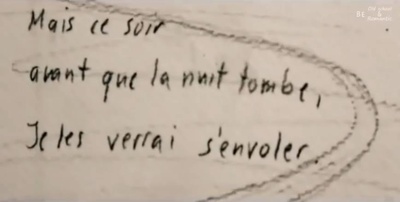 Mais ce soir
avant que la nuit tombe,
Je les verrai s'envoler.